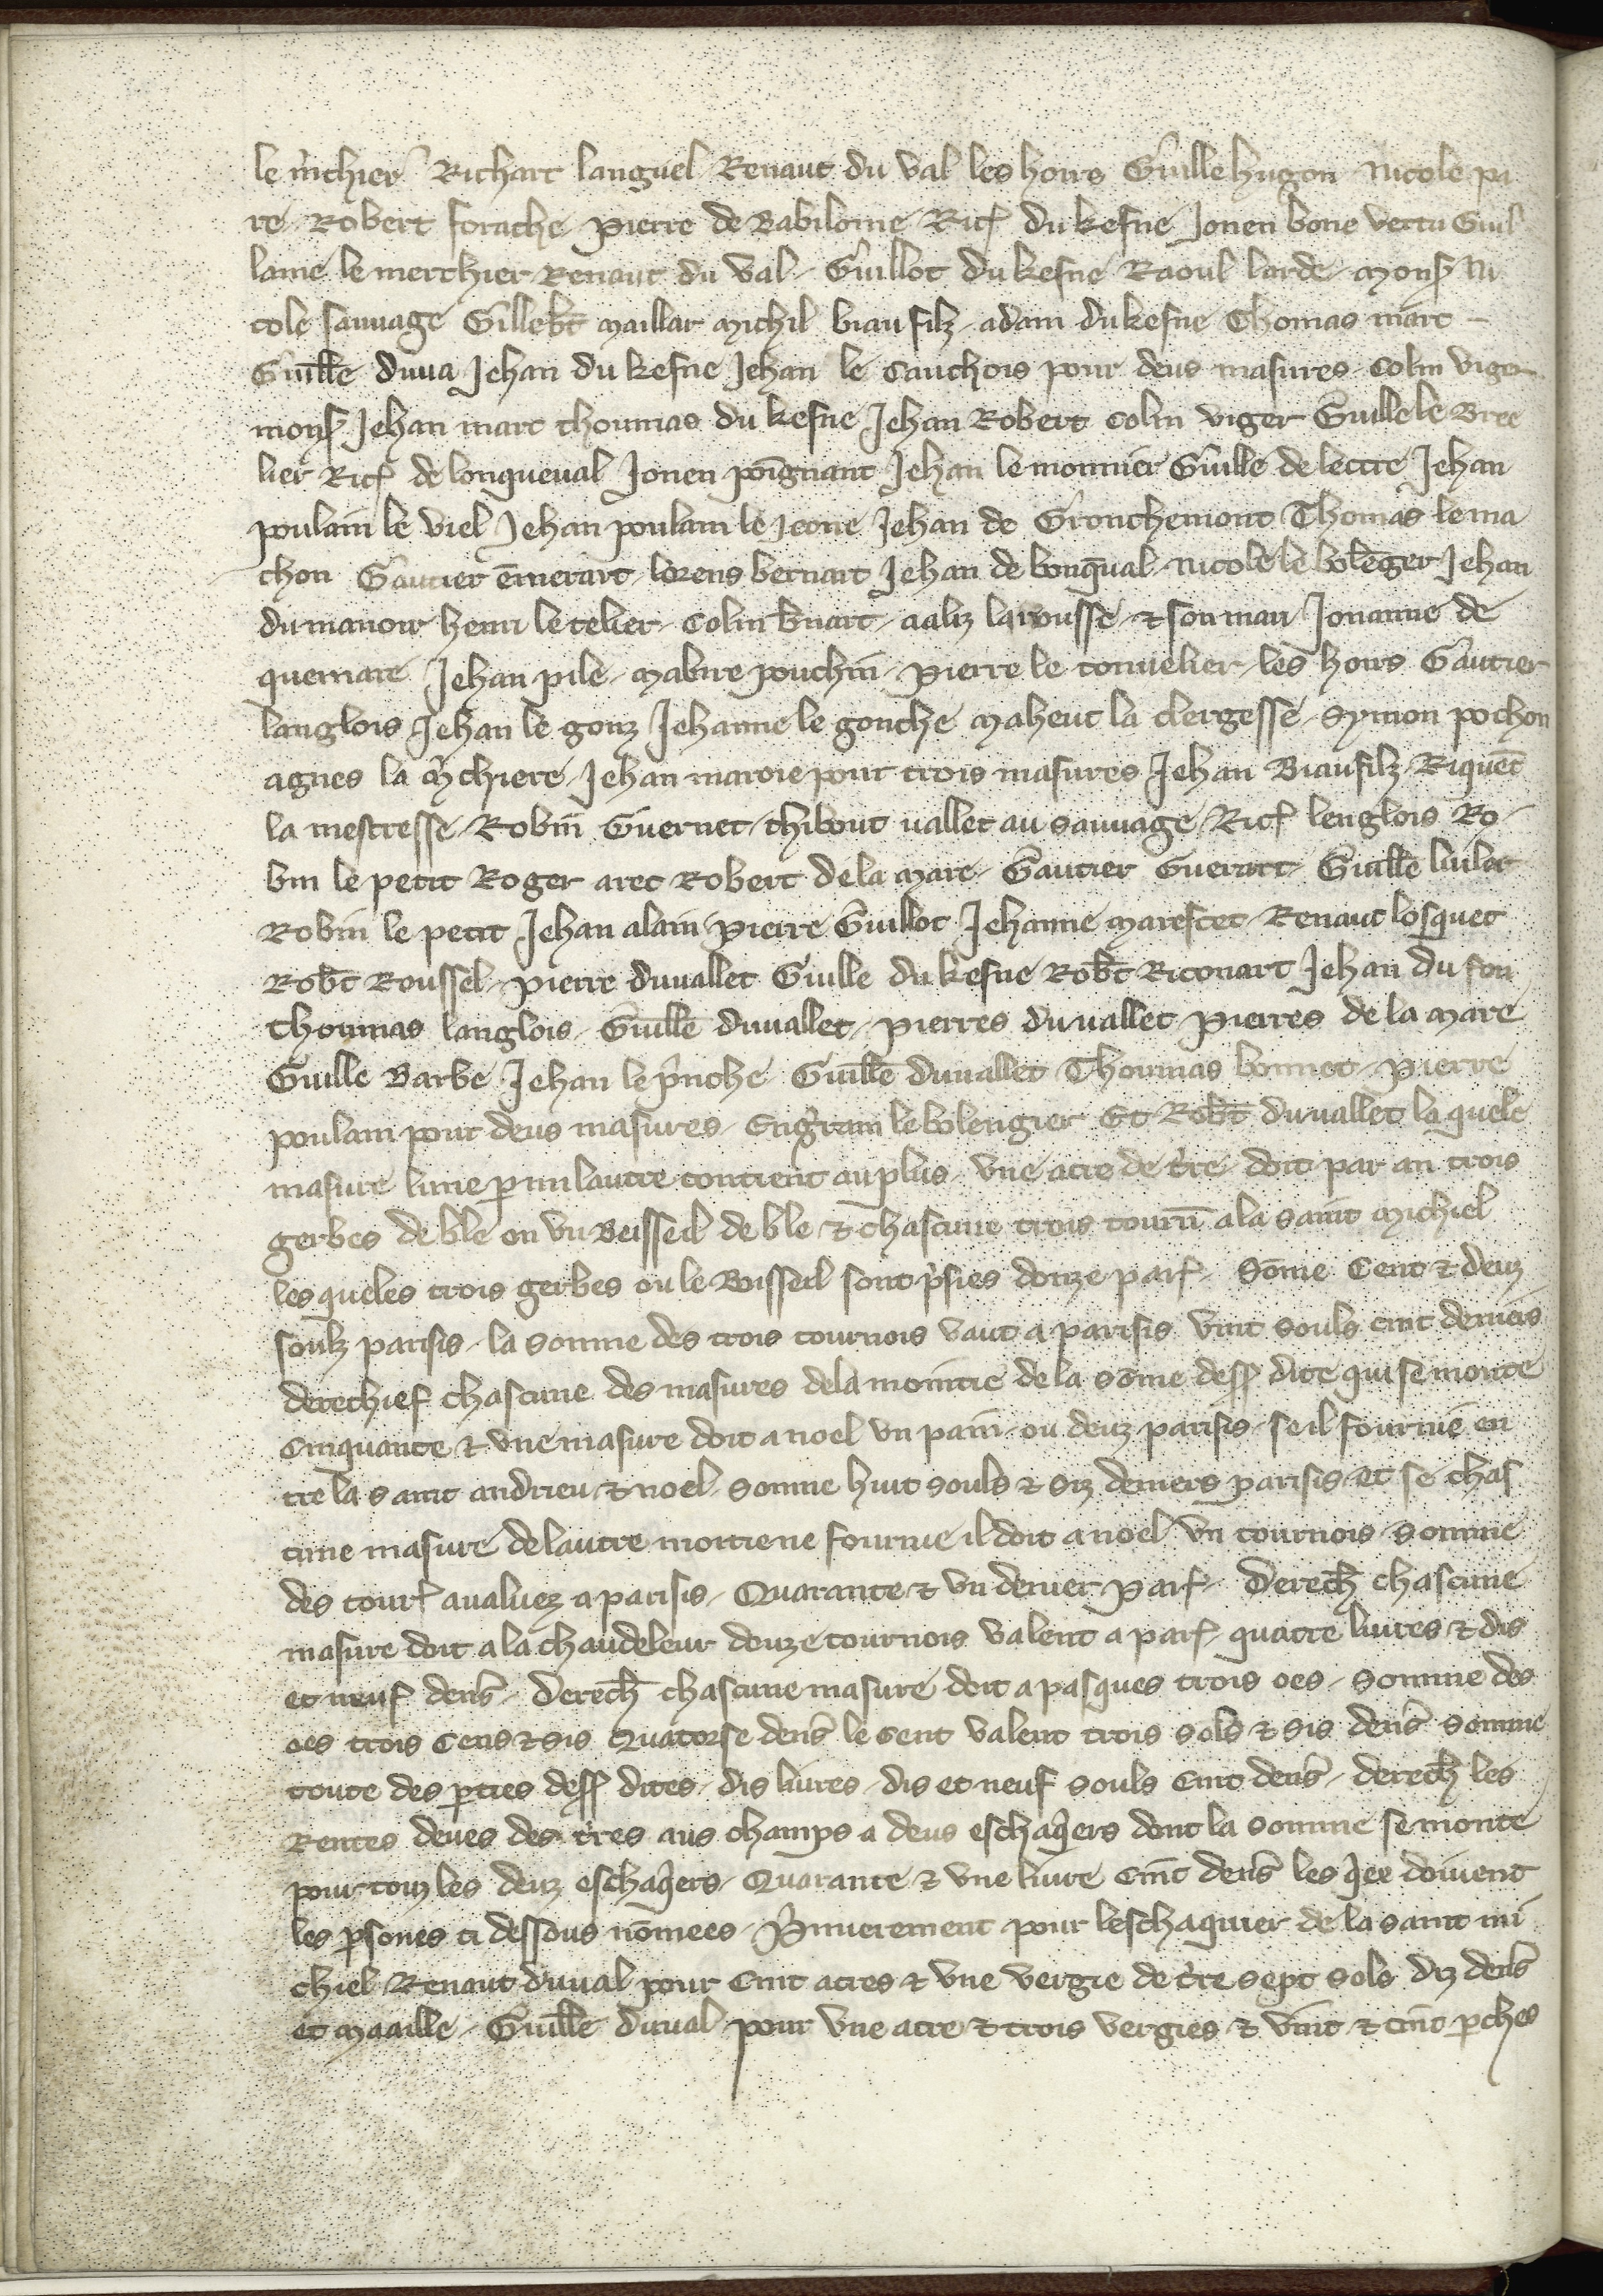 le m̾chier Richart languel Renaut du val les hoirs Guille hugon Nicole pa
re Robert forache Pierre de Babiloine Ric du kesne Jouen bone vertu Guil
laume le merchier Renaut du val Guillot du kesne Raoul larde Mons Ni
cole sauvage Gillebt Maillar Michil biau filz adam du kesne Thomas mart
Guille duva Jehan du kesne Jehan le Cauchois pour deus masures Colin viger
mons Jehan mart thoumas du kesne Jehan Robert Colin viger Guille le Bree
lier Ric de lonqueval Jouen poignant Jehan le monnier Guille de lectre Jehan
poulain le viel Jehan poulain le jeone Jehan de Gronchemont Thomas le ma
chon Gautier emerart lorens bernart Jehan de lonqval Nicole le bolenger Jehan
du manoir henri le telier Colin Evart aaliz la rousse & son mari Jouanne de
quemare Jehan pile Mabire pouchin Pierre le tonnelier les hoirs Gautier
langlois Jehan le gouz Jehanne le gouche Maheut la clergesse Symon pochon
agnes la m̾chiere Jehan maroie pour trois masures Jehan Biaufilz Riquet
la mestresse Robin Guernet thibout vallet au sauvage Ric lenglois Ro
bin le petit Roger arec Robert de la Mare Gautier Guerart Guille huilet
Robin le petit Jehan alain Pierre Guillot Jehanne Marescet Renaut losquet
Robt Roussel Pierre duvallet Guille du kesne Robt Ricouart Jehan du fou
thoumas langlois Guille duvallet Pierres du vallet Pierres de la Mare
Guille Barbe Jehan le p̾nche Guille duvallet Thoumas bonnet Pierre
poulain pour deus masures Engerram le bolengier Et Robt duvallet la quele
masure lune p mi lautre contient au plus une acre de t̾re doit par an trois
gerbes de ble ou un Beisseil de ble & chascune trois tourn a la saint Michiel
les queles trois gerbes ou le Boisseil sont p̾sies douze par Some Cent & deuz
soulz parisis la somme des trois tournois vaut a parisis vint souls cinc deniers
derechief chascune des masures de la moinctie de la some dess dite qui se monte
Cinquante & une masure doit a noel un pain ou deuz parisis se il fournie en
tre la saint andrieu & noel Somme huit souls & siz deniers parisis et se chas
cune masure de lautre moitie ne fournie il doit a noel un tournois Somme
des tour avaluez a parisis Quarante & un denier par Derech chascune
masure doit a la chandeleur douze tournois valent a par quatre livres & dis
et neuf dens Derech chascune masure doit a pasques trois oes Somme des
oes trois Cens & sis Quatorse dens le cent valent trois sols & sis dens Somme
toute des pties dess dites dis livres dis et neuf souls Cinc dens derech les
Rentes deues des t̾res aus champs a deus eschaqers dont la somme se monte
pour touz les deuz eschaqers Quarante & une livre Cinc dens les qee doivent
les psones ci dessous nomees P̾mierement pour leschaquier de la saint mi
chiel Renaut duval pour Cinc acres & une vergie de t̾re sept sols diz dens
et Maaille Guille duval pour une acre & trois vergies & vint & cinc pches